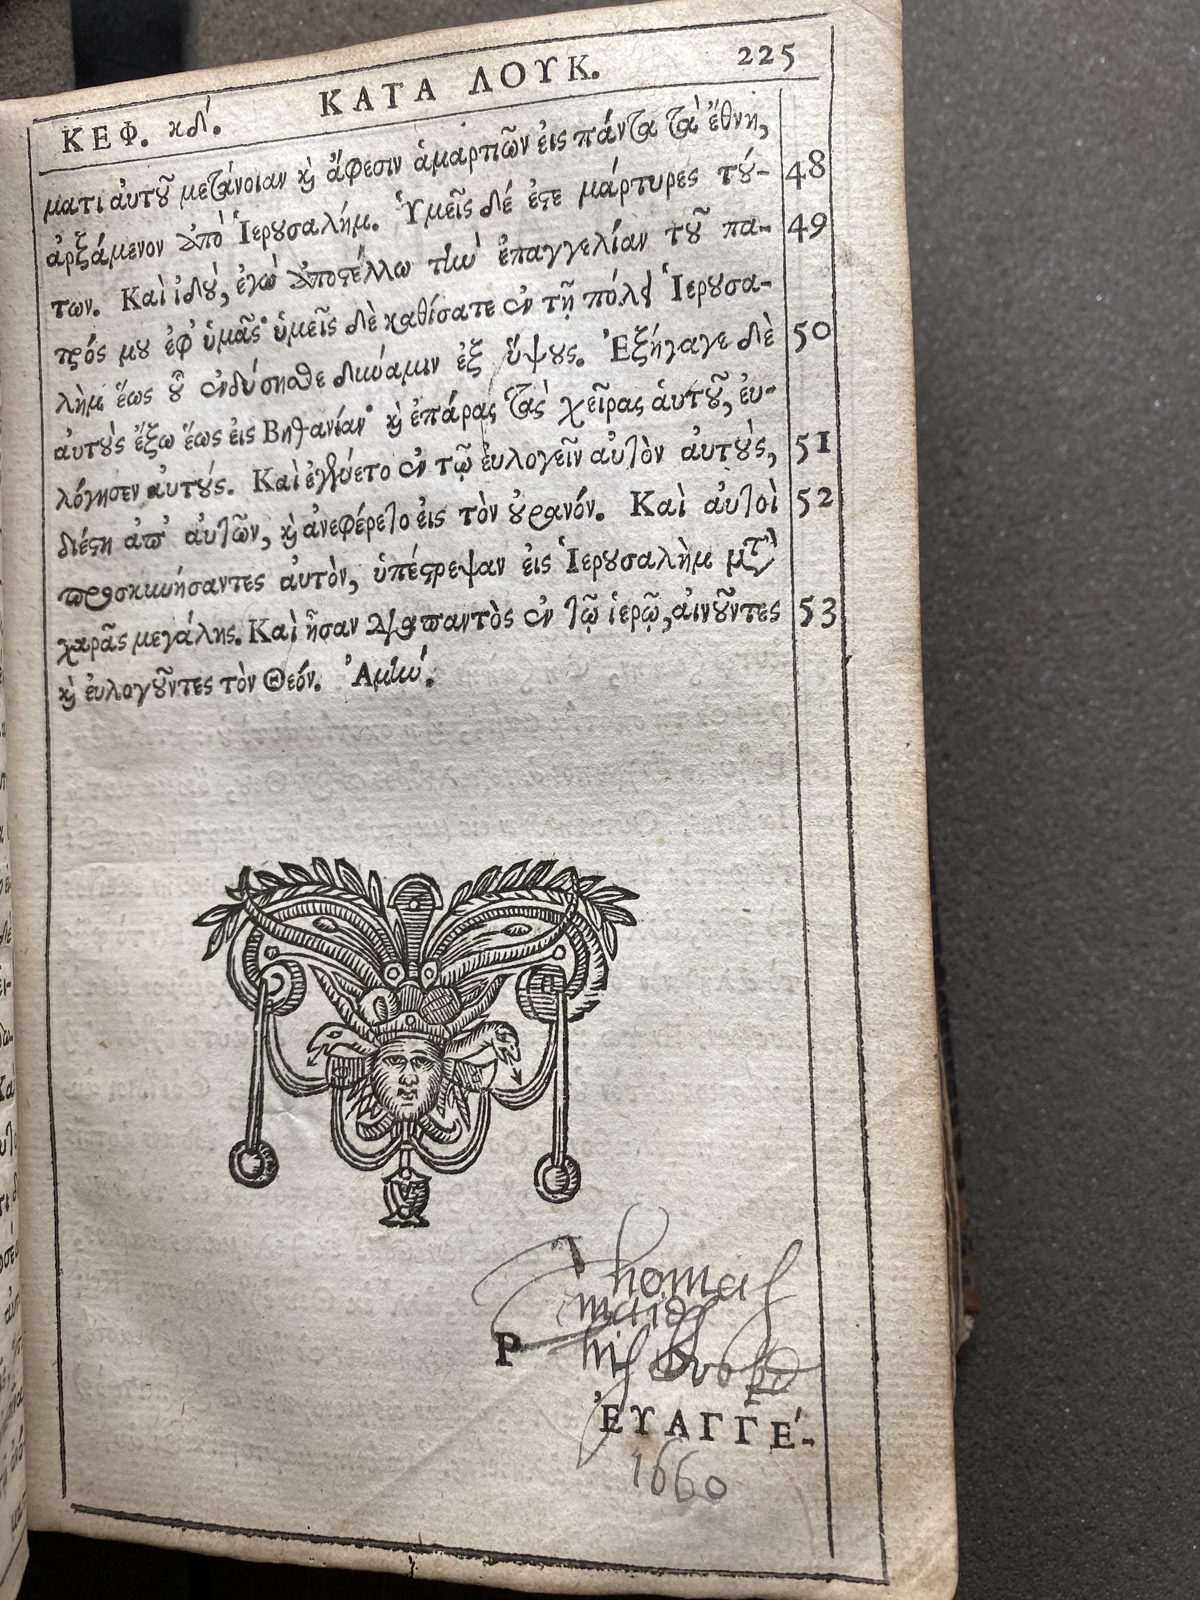 ΚΕΦ. κδ́. ΚΑΤΑ ΛΟΥΚ. 225
ματι αὐτοῦ μετάνοιαν καὶ ἄφεσιν ἁμαρτιῶν εἰς πάντα τὰ ἔθνη,
ἀρξάμενον ἀπὸ Ἱερουσαλήμ. Ὑμεῖς δέ ἐστε μάρτυρες τού- 48
των. Καὶ ἰδού, ἐγὼ ἀποστέλλω τὴν ἐπαγγελίαν τοῦ πα- 49
τρός μου ἐφ' ὑμᾶς· ὑμεῖς δὲ καθίσατε ἐν τῇ πόλει Ἱερουσα-
λὴμ ἕως οὗ ἐνδύσησθε δύναμιν ἐξ ὕψους. Ἐξήγαγε δὲ 50
αὐτοὺς ἔξω ἕως εἰς Βηθανίαν· καὶ ἐπάρας τὰς χεῖρας αὑτοῦ, εὐ-
λόγησεν αὐτούς. Καὶ ἐγένετο ἐν τῷ εὐλογεῖν αὐτὸν αὐτοὺς, 51
διέστη ἀπ' αὐτῶν, καὶ ἀνεφέρετο εἰς τὸν οὐρανόν. Καὶ αὐτοὶ 52
προσκυνήσαντες αὐτὸν, ὑπέστρεψαν εἰς Ἱερουσαλὴμ μετὰ
χαρᾶς μεγάλης. Καὶ ἦσαν διαπαντὸς ἐν τῷ ἱερῷ, αἰνοῦντες 53
καὶ εὐλογοῦντες τὸν Θεόν. Ἀμήν.
Thomas
P his
ἘΥΑΓΓΈ-
1660